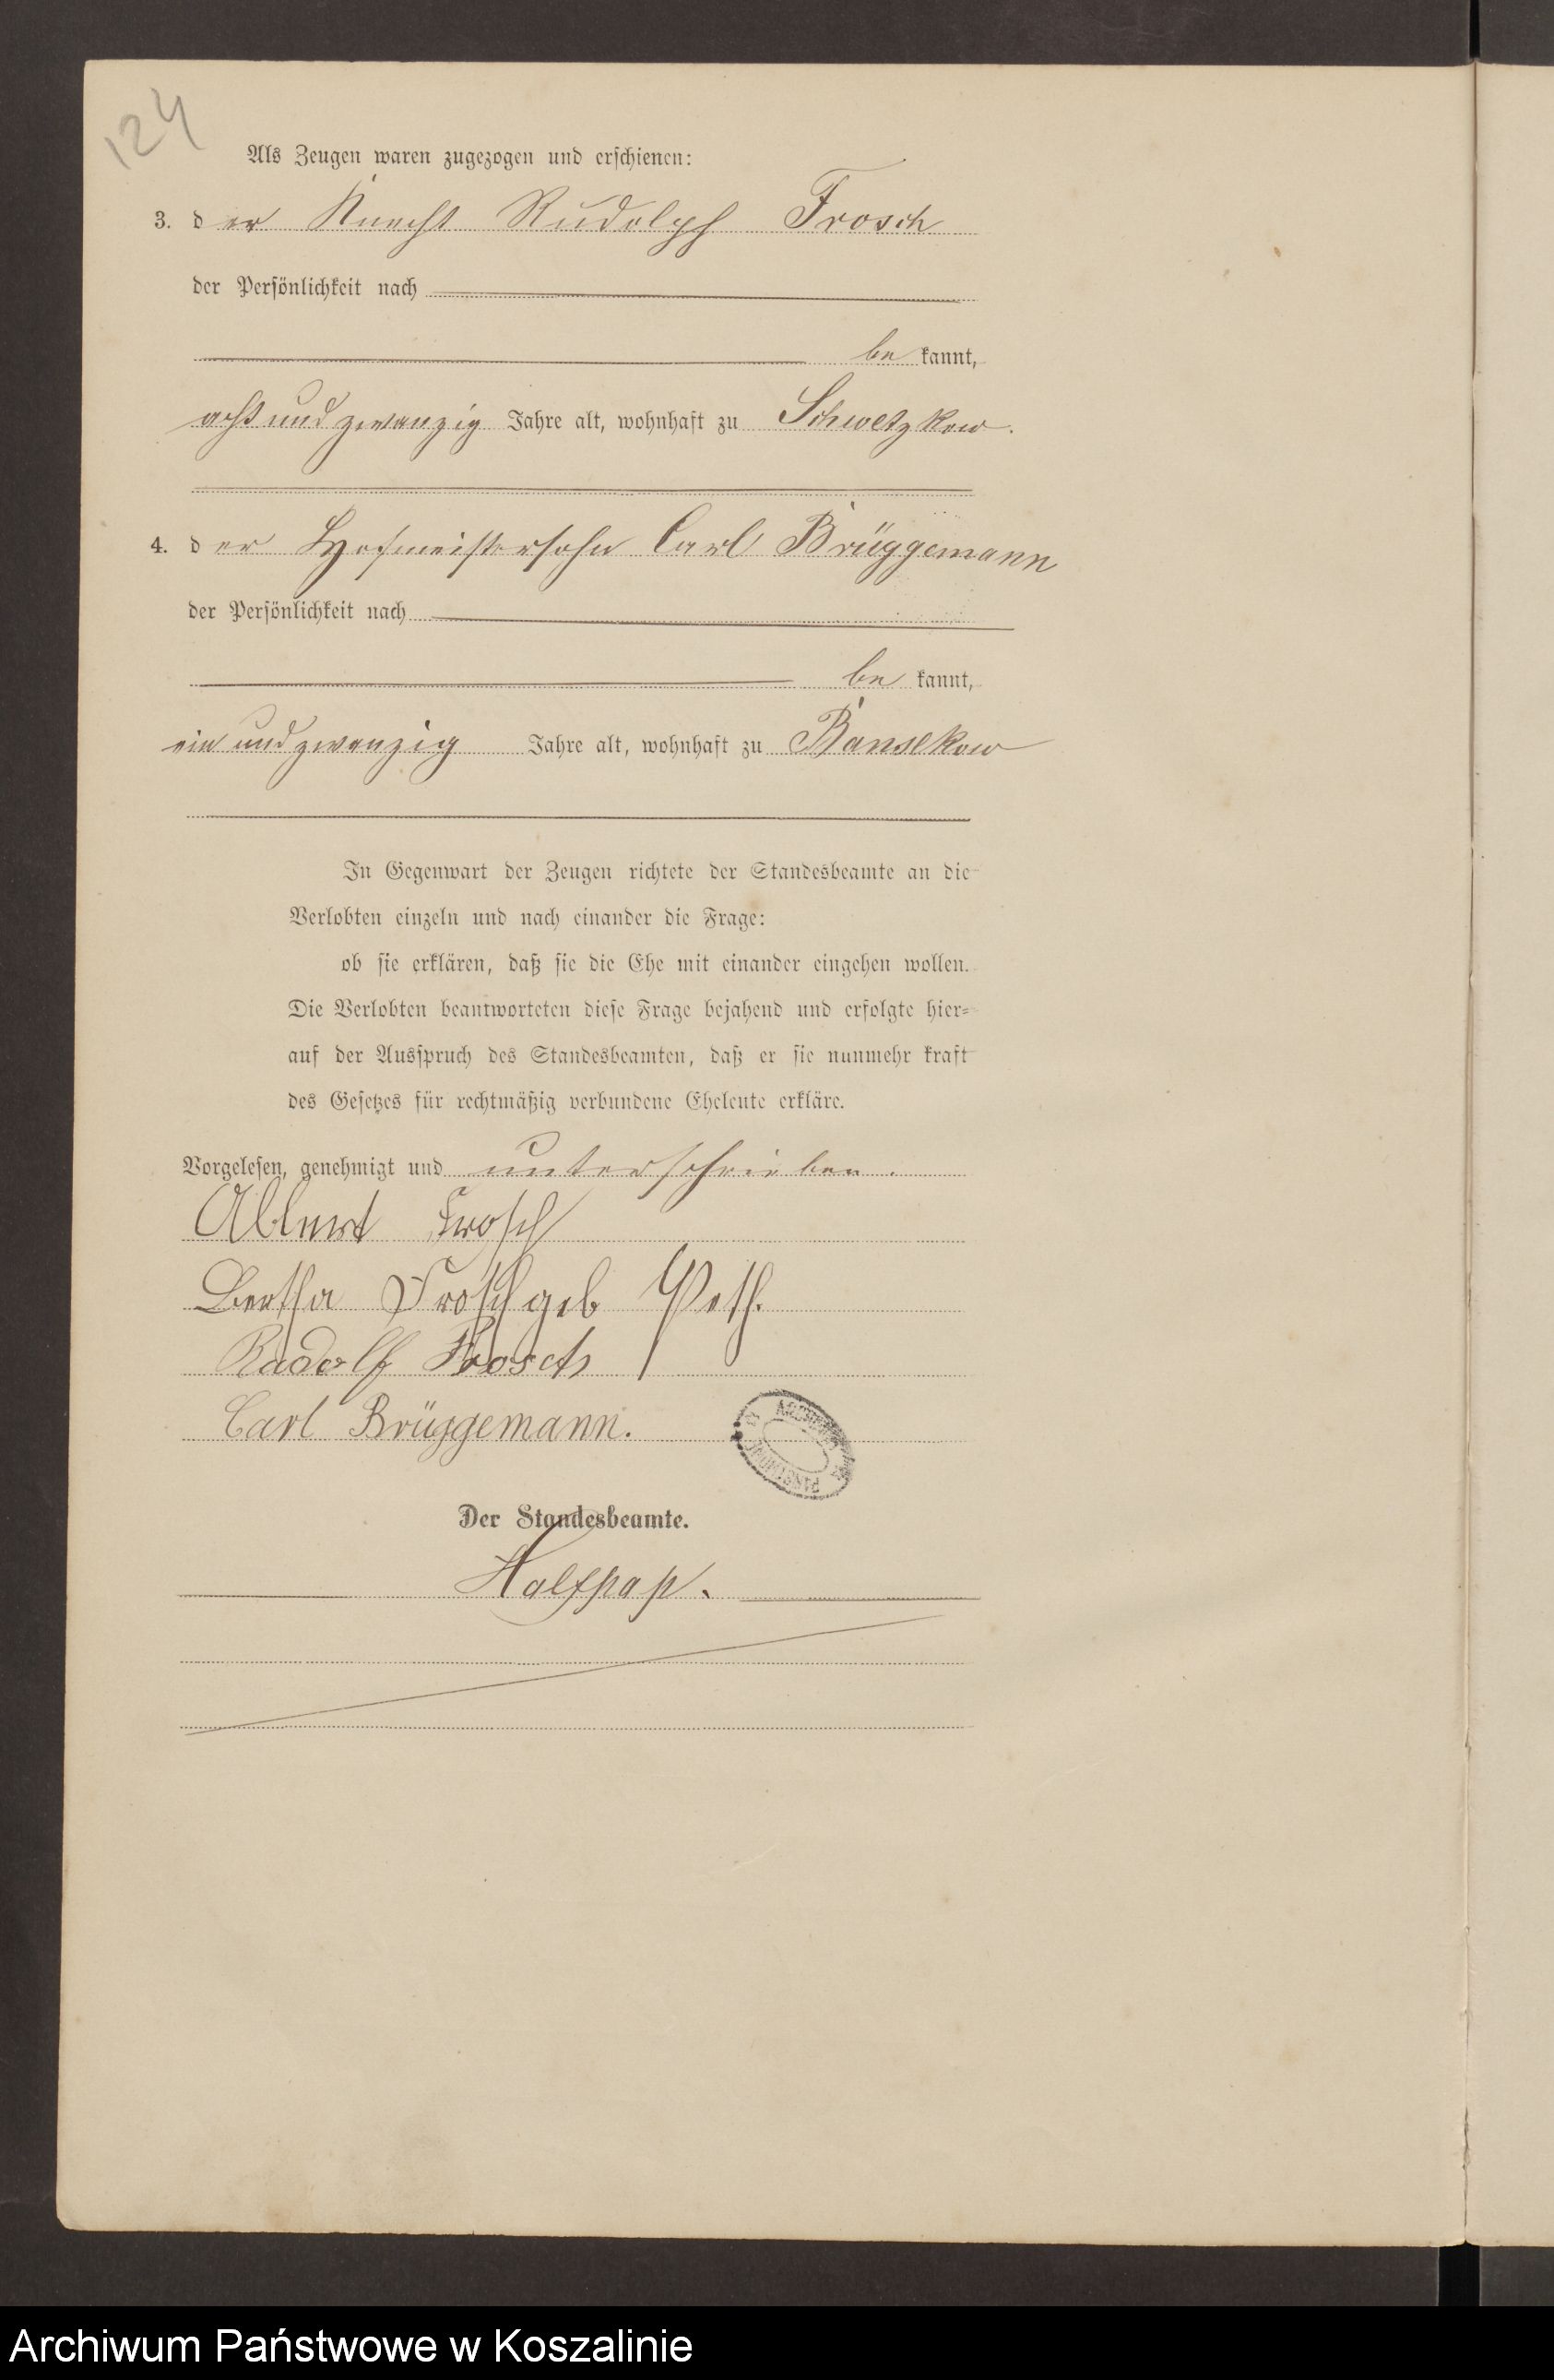 124
Als Zeugen waren zugezogen und erschienen:
3. der Knecht Rudolph Frosch
der Persönlichkeit nach
be kannt,
acht und zwanzig Jahre alt, wohnhaft zu Schwetzkow.
4. der Hofmeistersohn Carl Brüggemann
der Persönlichkeit nach
be kannt,
ein und zwanzig Jahre alt, wohnhaft zu Bansekow
In Gegenwart der Zeugen richtete der Standesbeamte an die
Verlobten einzeln und nach einander die Frage:
ob sie erklären, daß sie die Ehe mit einander eingehen wollen.
Die Verlobten beantworteten diese Frage bejahend und erfolgte hier-
auf der Ausspruch des Standesbeamten, daß er sie nunmehr kraft
des Gesetzes für rechtmäßig verbundene Eheleute erkläre.
Vorgelesen, genehmigt und unterschrieben.
Albert Frosch
Bertha Frosch geb Peth.
Rudolf Frosch
Carl Brüggemann.
Der Standesbeamte.
Halfpap.
Archiwum Państwowe w Koszalinie